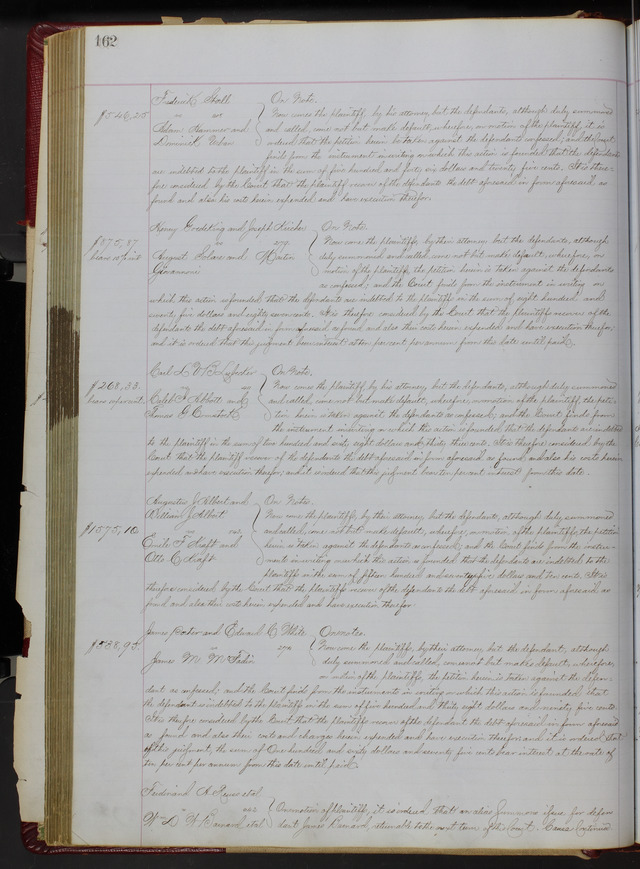 162
Frederick Stoll On Note.
$546,25 vs Now comes the plaintiff, by his attorney, but the defendants, although duly summoned
Adam Hammer and and called, come not but make default, wherefore, on motion of the plaintiff, it is
Dominick Urban ordered that the petition herein be taken against the defendants as confessed, and the Court
finds from the instrument in writing on which this action is founded that the defendants
are indebted to the plaintiff in the sum of five hundred and forty six dollars and twenty five cents. It is there-
fore considered by the Court that the plaintiff recover of the defendants the debt aforesaid in form aforesaid as
found and also his costs herein expended and have execution therefor.
Henry and Joseph On Note.
$875,87 vs 279 Now come the plaintiffs, by their attorney but the defendants, although
bears 10 pr cent August and Martin duly summoned and called, come not but make default, wherefore, on
motion of the plaintiffs, the petition herein is taken against the defendants
as confessed; and the Court finds from the instrument in writing on
which this action is founded that the defendants are indebted to the plaintiffs in the sum of eight hundred and
seventy five dollars and eighty seven cents. It is therefore considered by the Court that the plaintiffs recover of the
defendants the debt aforesaid in form aforesaid as found, and also their costs herein expended and have execution therefor;
and it is ordered that the judgment bear interest at ten per cent per annum from this date until paid.
Carl L. On Note.
$268,33. vs Now comes the plaintiff, by his attorney, but the defendants, although duly summoned
bears 10 per cent. Caleb S. Abbott and and called, come not but make default, wherefore, on motion of the plaintiff, the peti-
James G. Comstock tion herein is taken against the defendants as confessed; and the Court finds from
the instrument in writing on which this action is founded, that the defendants are indebted
to the plaintiff in the sum of two hundred and sixty eight dollars and thirty three cents. It is therefore considered by the
Court that the plaintiff recover of the defendants the debt aforesaid in form aforesaid as found, and also his costs herein
expended and have execution therefor; and it is ordered that the judgment bear ten per cent interest from this date.
Augustus J. Albert and On Notes.
William J. Albert Now come the plaintiffs, by their attorney but the defendants, although duly summoned
$1575,10 vs and called, come not but make default, wherefore, on motion of the plaintiffs, the petition
Emile F. Kraft and herein is taken against the defendants as confessed; and the Court finds from the instru-
Otto C. Kraft ments in writing on which this action is founded, that the defendants are indebted to the
plaintiffs in the sum of fifteen hundred and seventy five dollars and ten cents. It is
therefore considered by the Court that the plaintiffs recover of the defendants the debt aforesaid in form aforesaid as
found and also their costs herein expended and have execution therefor.
James and Edward C. White On notes.
$538,95. vs Now come the plaintiffs, by their attorney, but the defendant, although
James M. McFadin duly summoned and called, comes not but makes default; wherefore,
on motion of the plaintiffs, the petition herein is taken against the defen-
dant as confessed; and the Court finds from the instruments in writing on which this action is founded that
the defendant is indebted to the plaintiffs in the sum of five hundred and thirty eight dollars and ninety five cents.
It is therefore considered by the Court that the plaintiffs recover of the defendant the debt aforesaid in form aforesaid
as found and also their costs and charges herein expended and have execution therefor; and it is ordered that
of this judgment, the sum of One hundred and sixty dollars and seventy five cents bear interest at the rate of
ten per cent per annum from this date until paid.
Ferdinand A. et al
vs On motion of plaintiffs, it is ordered that an alias Summons issue for defen-
Wm D. W. Barnard et al dant James Barnard, returnable to the next term of this Court. Cause Continued